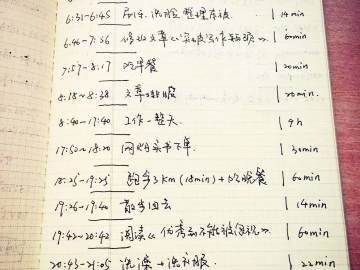 6:31-6:45 起床、洗脸、整理衣被 14min
6:46-7:56 修改文章 60min
7:57-8:17 吃早餐 20min
8:18~8:38 文章排版 20min.
8:40-17:40 工作一整天 9h
17:50~18:20 网购买书下单. 30min
18:25-19:25 跑步3km(18min)+吃晚餐 60min
19:26-19:40 散步回去 14min
19:42~20:42 阅读《优秀到不能被忽视》 60min
20:43-21:05 洗澡+洗衣服. 22min